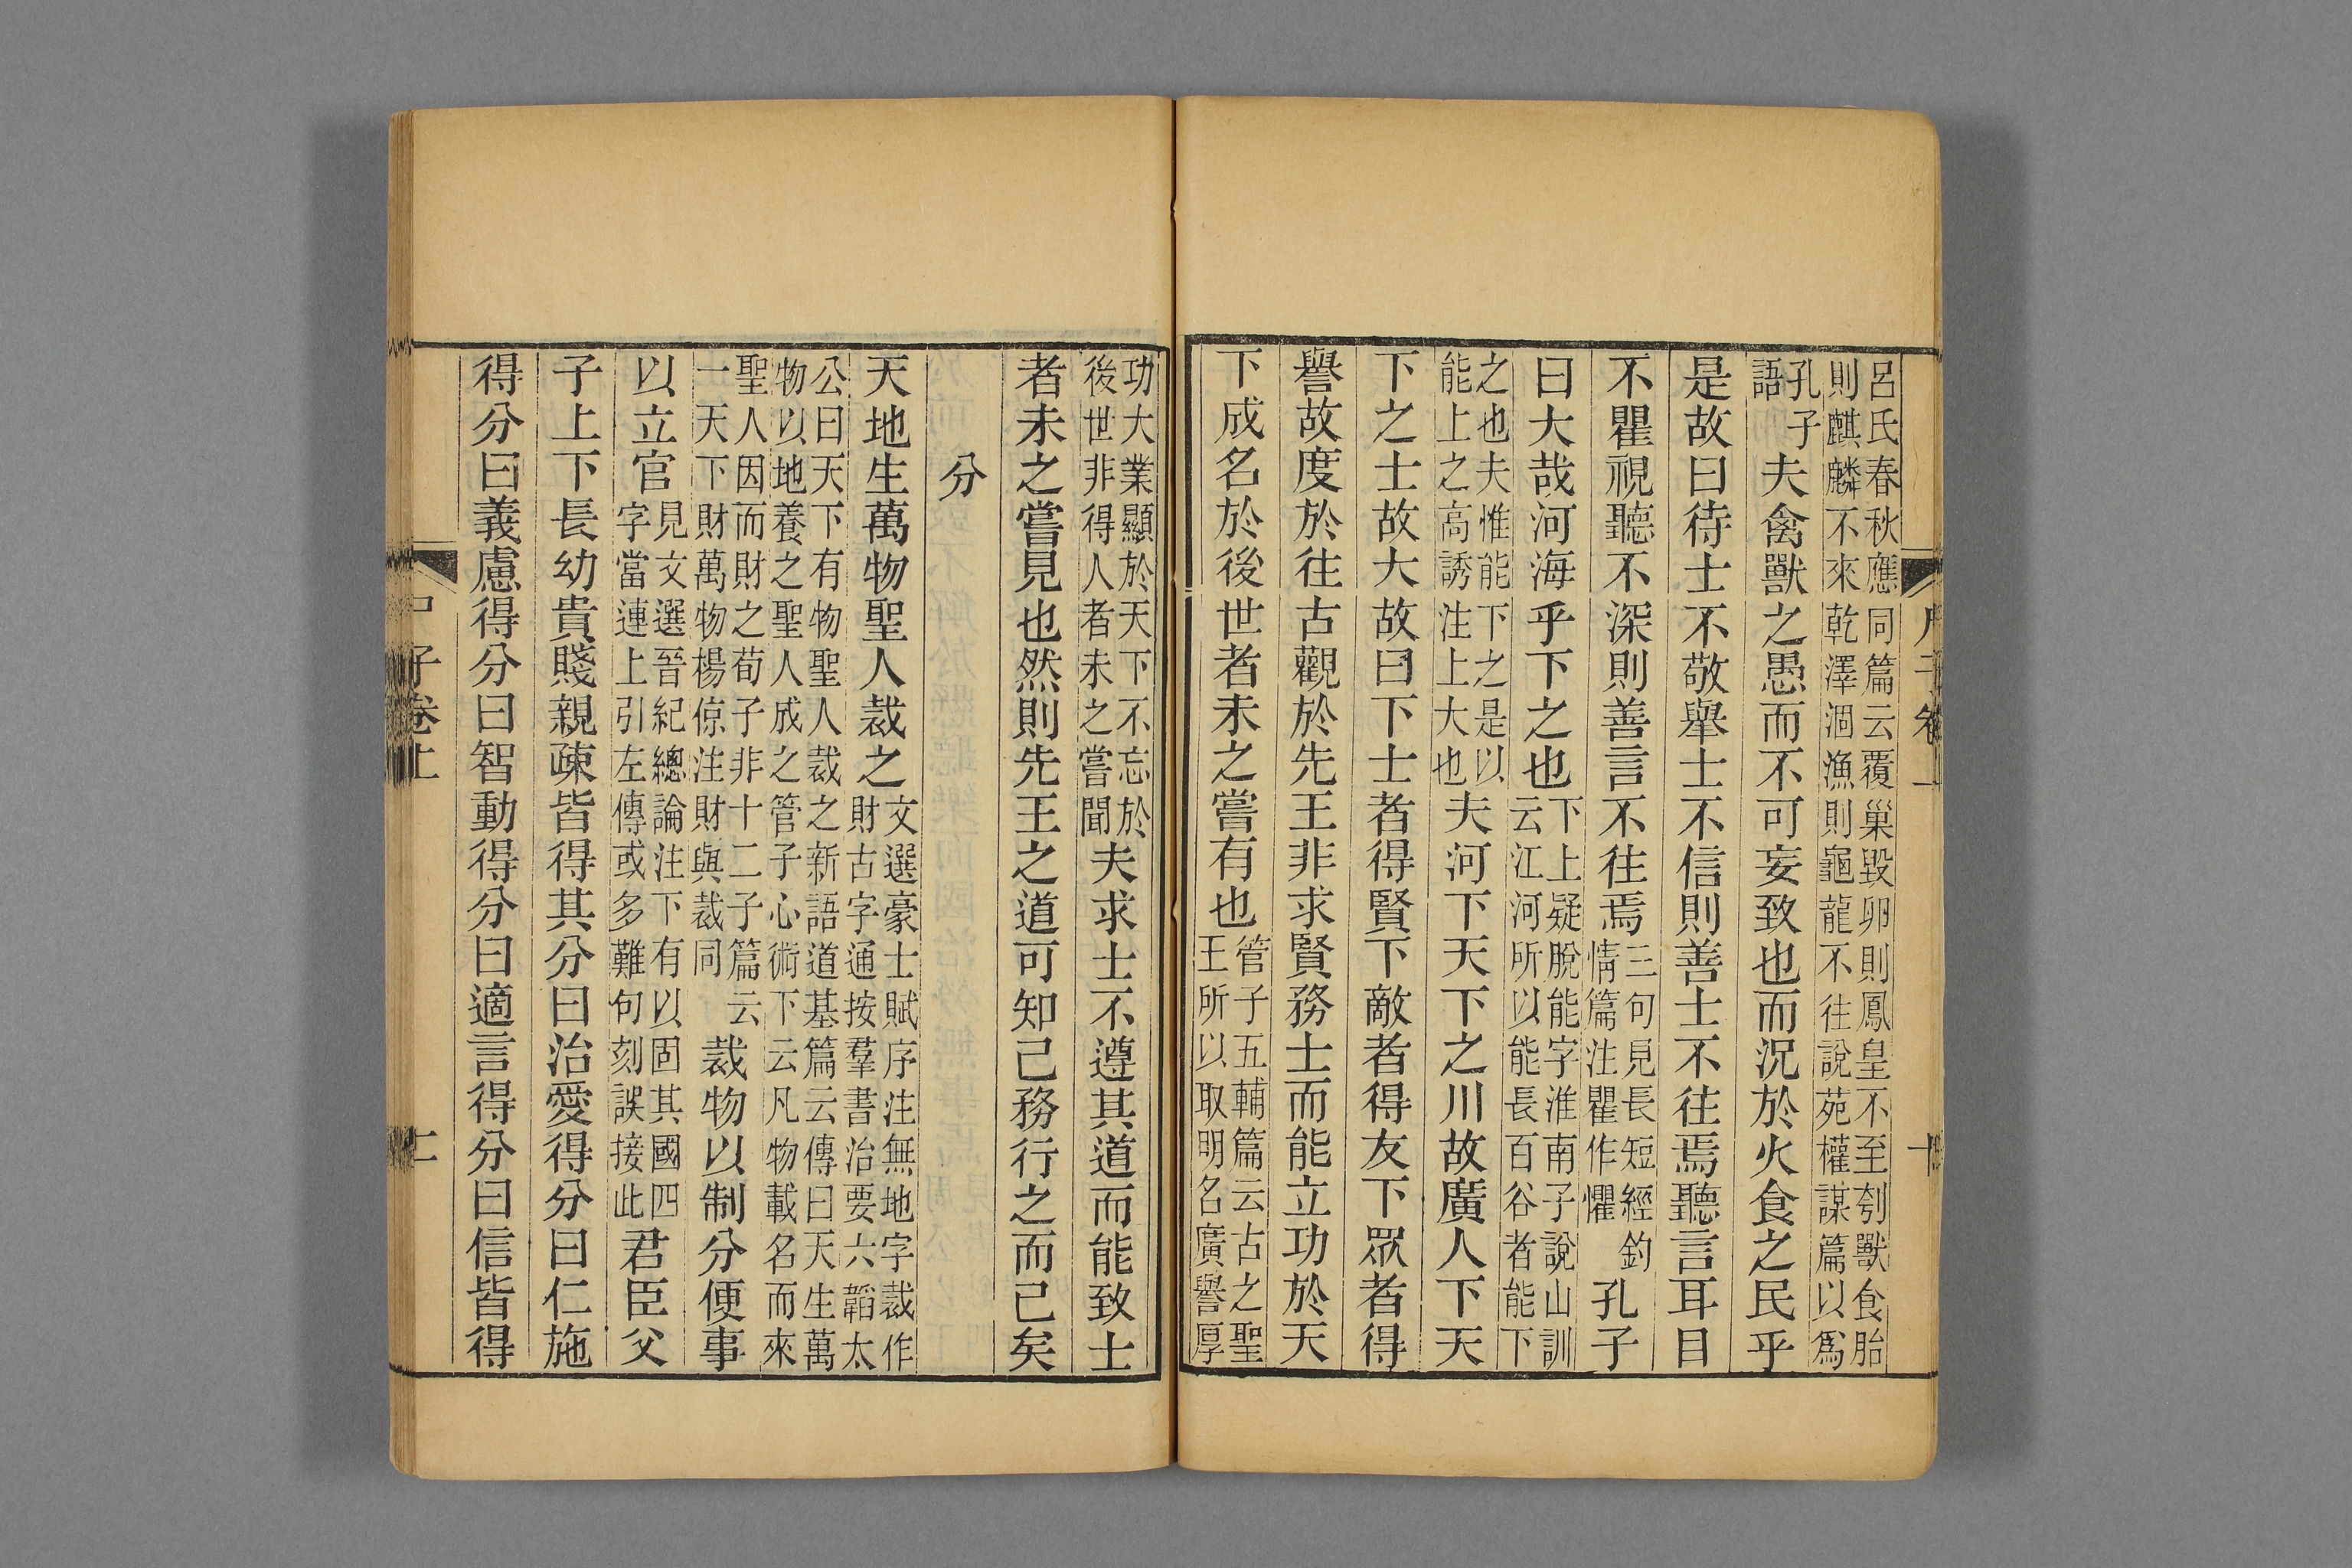 呂氏春秋應同篇云覆巢毀卵則鳳皇不至刳獸食胎
則麒麟不來乾澤涸漁則龜龍不往說苑權謀篇以爲
孔子
語
夫禽獸之愚而不可妄致也而況於火食之民乎
是故曰待士不敬舉士不信則善士不往焉聽言耳目
不瞿視聽不深則善言不往焉
三句見長短經釣
情篇注瞿作懼
孔子
曰大哉河海乎下之也
下上疑脫能字淮南子說山訓
云江河所以能長百谷者能下
之也夫惟能下之是以
能上之高誘注上大也
夫河下天下之川故廣人下天
下之士故大故曰下士者得賢下敵者得友下眾者得
譽故度於往古觀於先王非求賢務士而能立功於天
下成名於後世者未之嘗有也
管子五輔篇云古之聖
王所以取明名廣譽厚
功大業顯於天下不忘於
後世非得人者未之嘗聞
夫求士不遵其道而能致士
者未之嘗見也然則先王之道可知己務行之而已矣
分
天地生萬物聖人裁之
文選豪士賦序注無地字裁作
財古字通按羣書治要六韜太
公曰天下有物聖人裁之新語道基篇云傳曰天生萬
物以地養之聖人成之管子心術下云凡物載名而來
聖人因而財之荀子非十二子篇云
一天下財萬物楊倞注財與裁同
裁物以制分便事
以立官
見文選晉紀總論注下有以固其國四
字當連上引左傳或多難句刻誤接此
君臣父
子上下長幼貴賤親疎皆得其分曰治愛得分曰仁施
得分曰義慮得分曰智動得分曰適言得分曰信皆得
子卷上